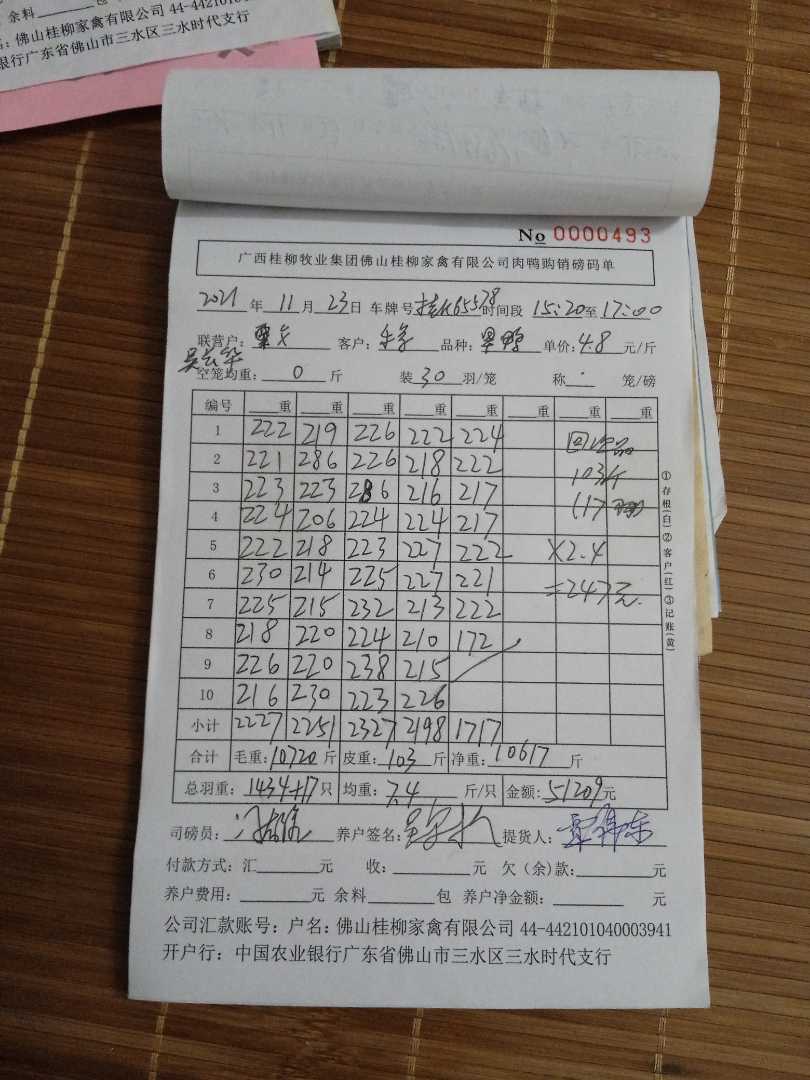 余料
佛山桂柳家禽有限公司 44-44210101
银行广东省佛山市三水区三水时代支行
No 0000493
广西桂柳牧业集团佛山桂柳家禽有限公司肉鸭购销磅码单
2021 年 11 月 23 日 车牌号 65578 时间段 15:20 至 17:00
联营户: 客户: 品种: 单价: 4.8 元/斤
空笼均重: 0 斤 装 30 羽/笼 称 笼/磅
编号 重 重 重 重 重 重 重 重
1 222 219 226 222 224 回收次品
2 221 286 226 218 222 103斤
3 223 223 286 216 217 (17
4 224 206 224 224 217
5 222 218 223 227 222 ×2.4
6 230 214 225 227 221 =247元.
7 225 215 232 213 222
8 218 220 224 210 172
9 226 220 238 215
10 216 230 223 226
小计 2227 2251 2327 2198 1717
合计 毛重: 10720 斤 皮重: 103 斤 净重: 10617 斤
总羽重: 1434+17 只 均重: 7.4 斤/只 金额: 51209 元
司磅员: 养户签名: 提货人:
付款方式: 汇 元 收: 元 欠(余)款: 元
养户费用: 元 余料 包 养户净金额: 元
公司汇款账号: 户名: 佛山桂柳家禽有限公司 44-442101040003941
开户行: 中国农业银行广东省佛山市三水区三水时代支行
①存根(白)②客户(红)③记账(黄)